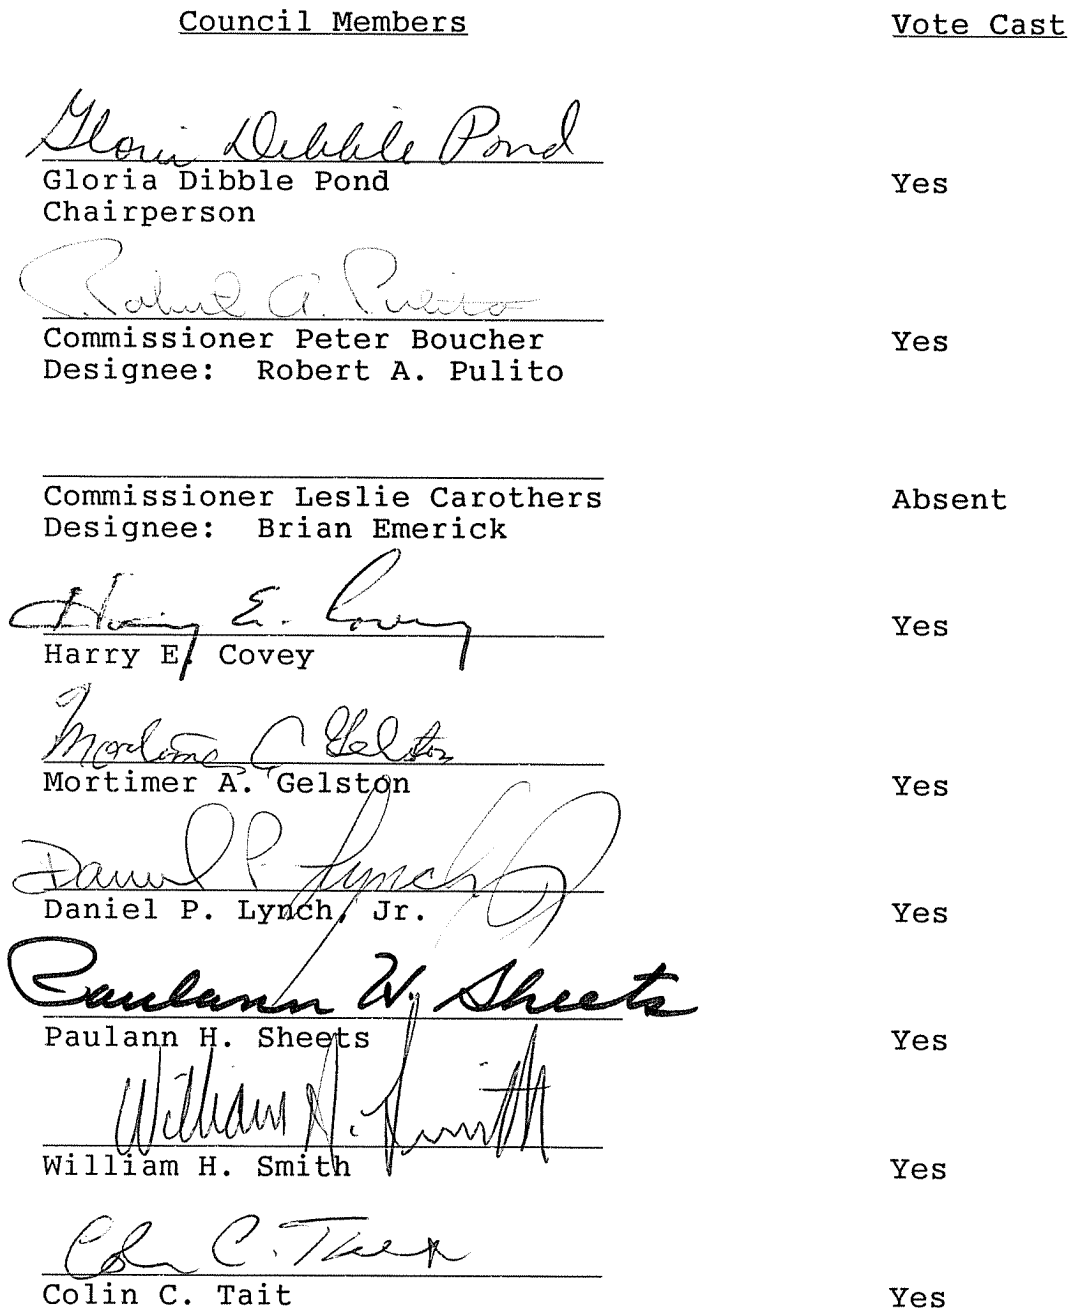 Council Members Vote Cast
Gloria Dibble Pond
Gloria Dibble Pond Yes
Chairperson
Robert A. Pulito
Commissioner Peter Boucher Yes
Designee: Robert A. Pulito
Commissioner Leslie Carothers Absent
Designee: Brian Emerick
Harry E. Covey
Harry E. Covey Yes
Mortimer A. Gelston
Mortimer A. Gelston Yes
Daniel P. Lynch Jr
Daniel P. Lynch, Jr. Yes
Paulann H. Sheets
Paulann H. Sheets Yes
William H. Smith
William H. Smith Yes
Colin C. Tait
Colin C. Tait Yes